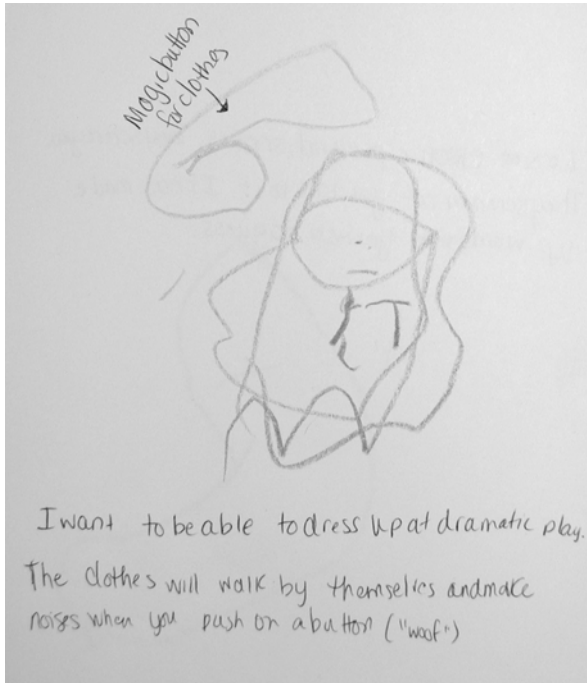 Magic button
for clothes
I want to be able to dress up at dramatic play.
The clothes will walk by themselves and make
noises when you push on a button ("woof")